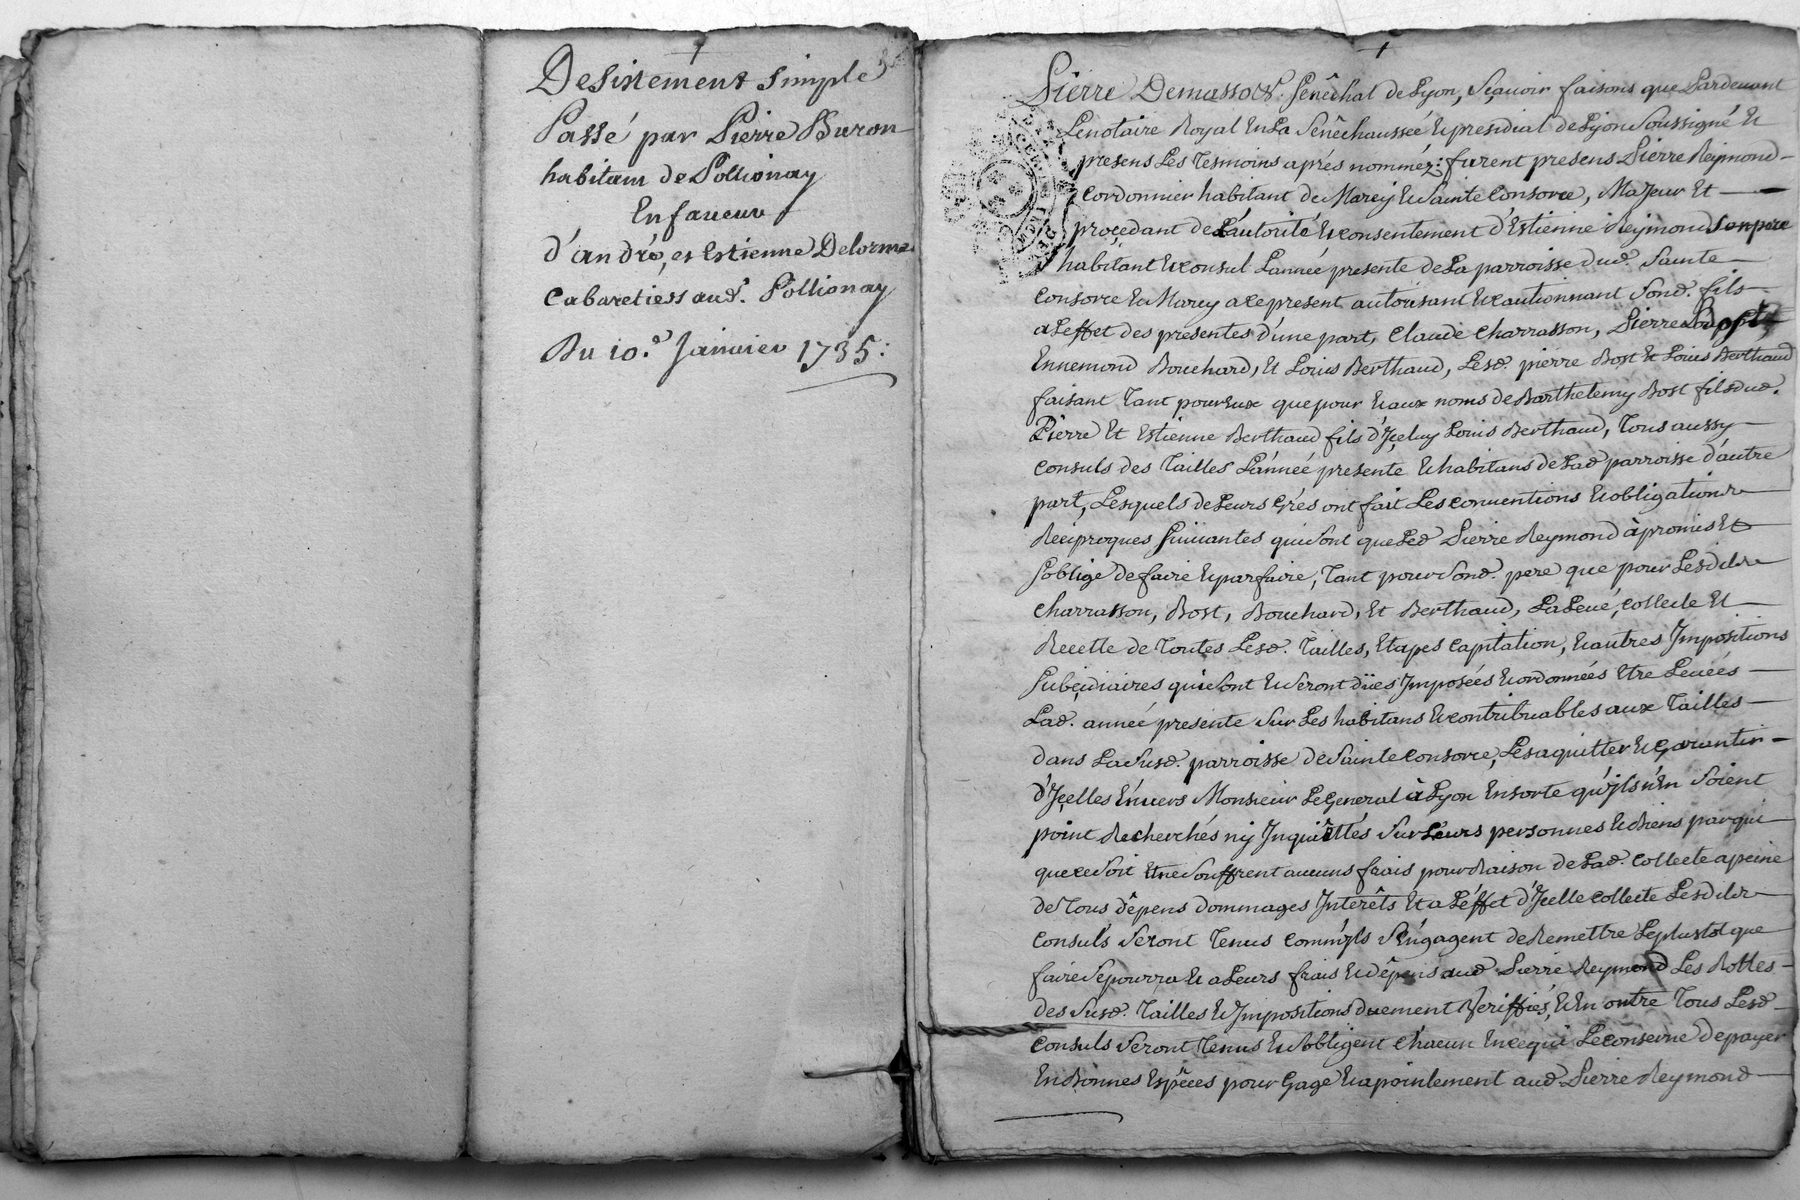 Desistement simple
Passé par Pierre Buron
habitant de Pollionay
En faueur
d'andré, et Estienne Delorme
Cabaretiers aud. Pollionay
Du 10.e Januier 1735:
Pierre Demasso &. Senêchal de Lyon, Sçauoir faisons que Pardeuant
Lenotaire Royal En La Senêchausseé & presidial de Lyon Soussigné &
presens Les Tesmoins aprés nomméz: furent presens Pierre Reymond
cordonnier habitant de Marcy & Sainte Consorce, Majeur Et
proçedant de L'autorité & consentement d'Estienne Reymond son pere
habitant & consul L'anneé presente de La parroisse dud. Sainte
Consorce & Marcy a ce present autorisant & cautionnant Sond. fils
a L'effet des presentes d'une part, Claude Charrasson, Pierre Bost
Ennemond Bouchard, Et Louis Berthaud, Lesd. pierre Bost & Louis Berthaud
faisant Tant pour Eux que pour & aux noms de Barthelemy Bost fils dud.
Pierre Et Estienne Berthaud fils d'Jçeluy Louis Berthaud, Tous aussy
Consuls des Tailles L'anneé presente & habitans de Lad parroisse d'autre
part, Lesquels de Leurs Grés ont fait Les conuentions & obligations
Reciproques Suiuantes qui Sont que Led Pierre Reymond à promis Et
S'oblige de faire & parfaire, Tant pour Sond. pere que pour Lesdits
Charrasson, Bost, Bouchard, Et Berthaud, La Leué, Collecte Et
Recette de Toutes Lesd. Tailles, Etapes Capitation, & autres Jmpositions
Subçidiaires qui Sont & Seront dües Jmposées & ordonnées Etre Leuées
Lad. anneé presente Sur Les habitans & contribuables aux Tailles
dans La Susd. parroisse de Sainte Consorce, Les aquitter & Garantir
d'Jçelles Enuers Monsieur Le General à Lyon En sorte qu'jls n'En Soient
point Recherchés ny Jnquiêttés Sur Leurs personnes & Biens par qui
que ce Soit Et ne Souffrent aucuns frais pour Raison de Lad. Collecte a peine
de Tous dêpens dommages Jnterêts Et a L'éffet d'Jcelle collecte Lesdits
Consuls Seront Tenus comm'jls S'Engagent de Remettre Le plustot que
faire Se pourra & a Leurs frais & dêpens aud Pierre Reymond Les Rolles
des Susd. Tailles & Jmpositions duement Veriffiés, & En outre Tous Lesd
Consuls Seront Tenus & S'obligent Chacun En ce qui Le conserne de payer
En Bonnes Espêces pour Gage & apointement aud. Pierre Reymond